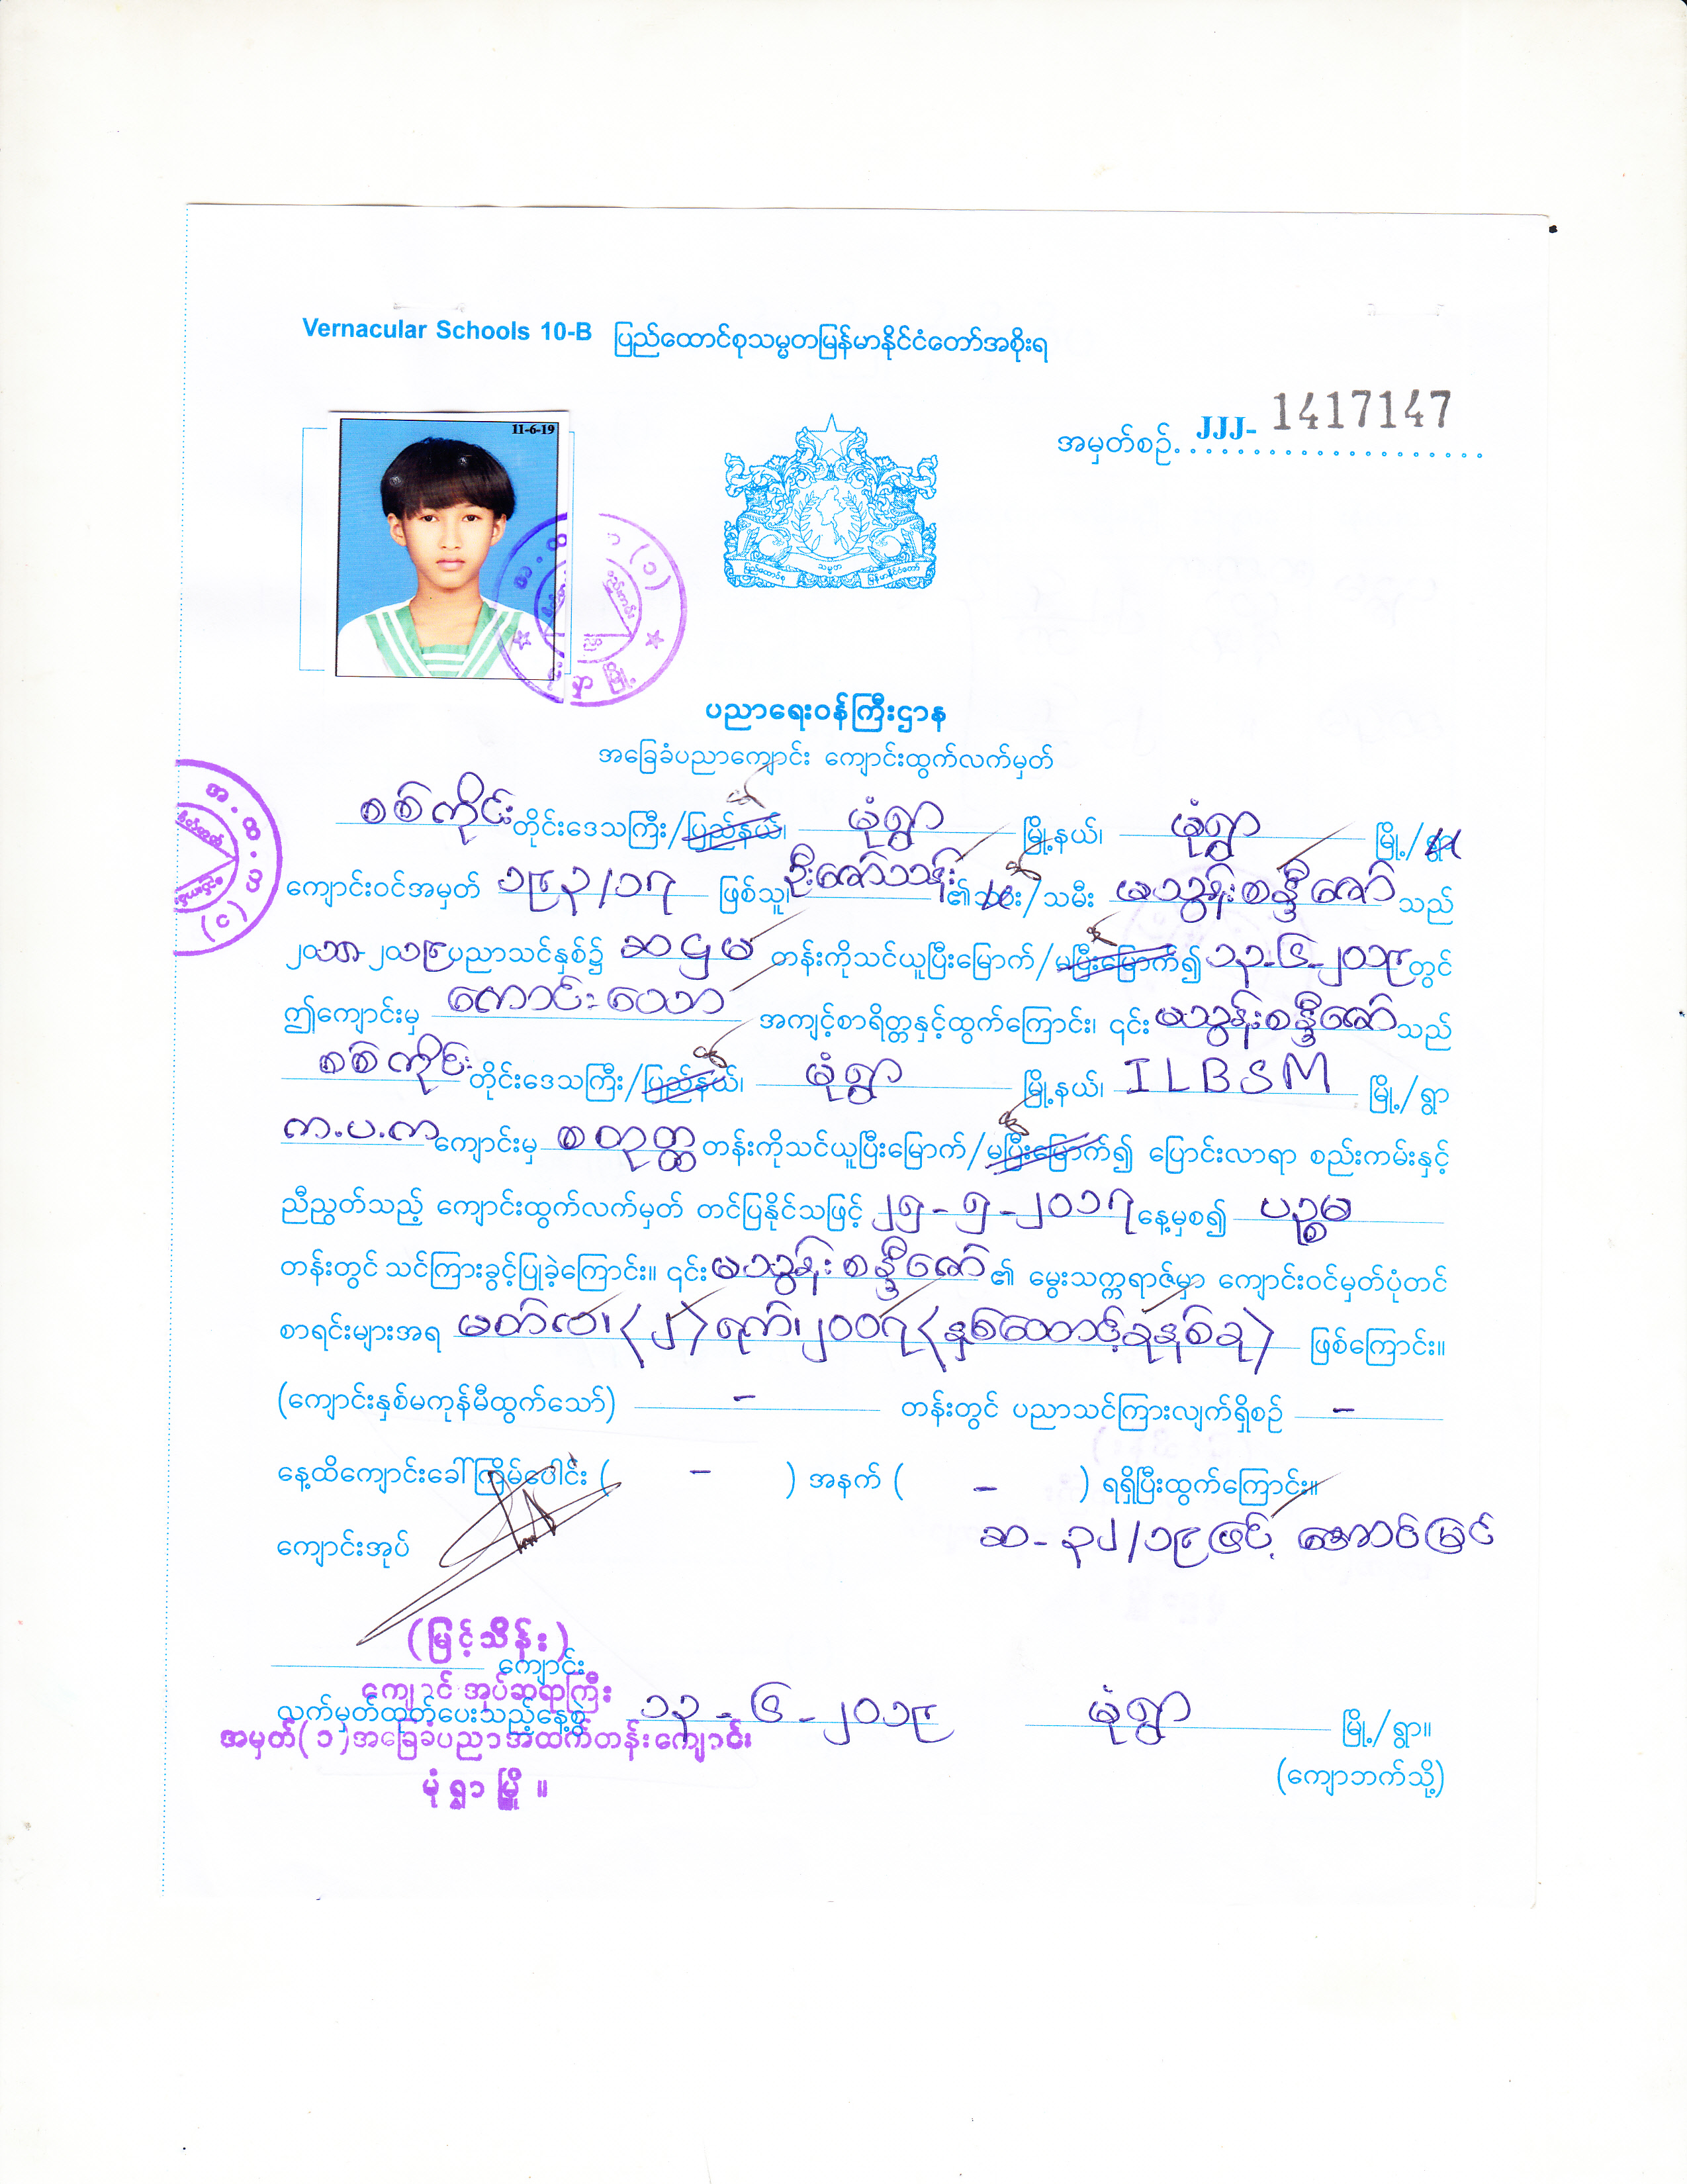 Vernacular Schools 10-B ပြည်ထောင်စုသမ္မတမြန်မာနိုင်ငံတော်အစိုးရ
အမှတ်စဉ်. JJJ- 1417147
11-6-19
ပြည်ထောင်စု သမ္မတ မြန်မာနိုင်ငံတော်
ပညာရေးဝန်ကြီးဌာန
အခြေခံပညာကျောင်း ကျောင်းထွက်လက်မှတ်
စစ်ကိုင်း တိုင်းဒေသကြီး/ပြည်နယ်၊ မုံရွာ မြို့နယ်၊ မုံရွာ မြို့/ရွာ
ကျောင်းဝင်အမှတ် ၁၉၃/၁၇ ဖြစ်သူ၊ ဦးဇော်သန်း ၏သား/သမီး မသွန်းစန္ဒီဇော် သည်
၂၀၁၈-၂၀၁၉ ပညာသင်နှစ်၌ ဆဌမ တန်းကိုသင်ယူပြီးမြောက်/မပြီးမြောက်၍ ၁၃-၆-၂၀၁၉ တွင်
ဤကျောင်းမှ ကောင်းသော အကျင့်စာရိတ္တနှင့်ထွက်ကြောင်း၊ ၎င်း မသွန်းစန္ဒီဇော် သည်
စစ်ကိုင်း တိုင်းဒေသကြီး/ပြည်နယ်၊ မုံရွာ မြို့နယ်၊ ILBSM မြို့/ရွာ
က.ပ.က ကျောင်းမှ စတုတ္ထ တန်းကိုသင်ယူပြီးမြောက်/မပြီးမြောက်၍ ပြောင်းလာရာ စည်းကမ်းနှင့်
ညီညွတ်သည့် ကျောင်းထွက်လက်မှတ် တင်ပြနိုင်သဖြင့် ၂၅-၅-၂၀၁၇ နေ့မှစ၍ ပဉ္စမ
တန်းတွင် သင်ကြားခွင့်ပြုခဲ့ကြောင်း။ ၎င်း မသွန်းစန္ဒီဇော် ၏ မွေးသက္ကရာဇ်မှာ ကျောင်းဝင်မှတ်ပုံတင်
စာရင်းများအရ မတ်လ၊ (၂) ရက်၊ ၂၀၀၇ (နှစ်ထောင့်ခုနစ်ခု) ဖြစ်ကြောင်း။
(ကျောင်းနှစ်မကုန်မီထွက်သော်) - တန်းတွင် ပညာသင်ကြားလျက်ရှိစဉ် -
နေ့ထိကျောင်းခေါ်ကြိမ်ပေါင်း ( - ) အနက် ( - ) ရရှိပြီးထွက်ကြောင်း။
ကျောင်းအုပ် ဆ-၃၂/၁၉ဖြင့် အောင်မြင်
(မြင့်သိန်း)
ကျောင်း
ကျောင်းအုပ်ဆရာကြီး
လက်မှတ်ထုတ်ပေးသည့်နေ့စွဲ ၁၃-၆-၂၀၁၉ မုံရွာ မြို့/ရွာ။
အမှတ်(၁)အခြေခံပညာအထက်တန်းကျောင်း
(ကျောဘက်သို့)
မုံရွာမြို့။